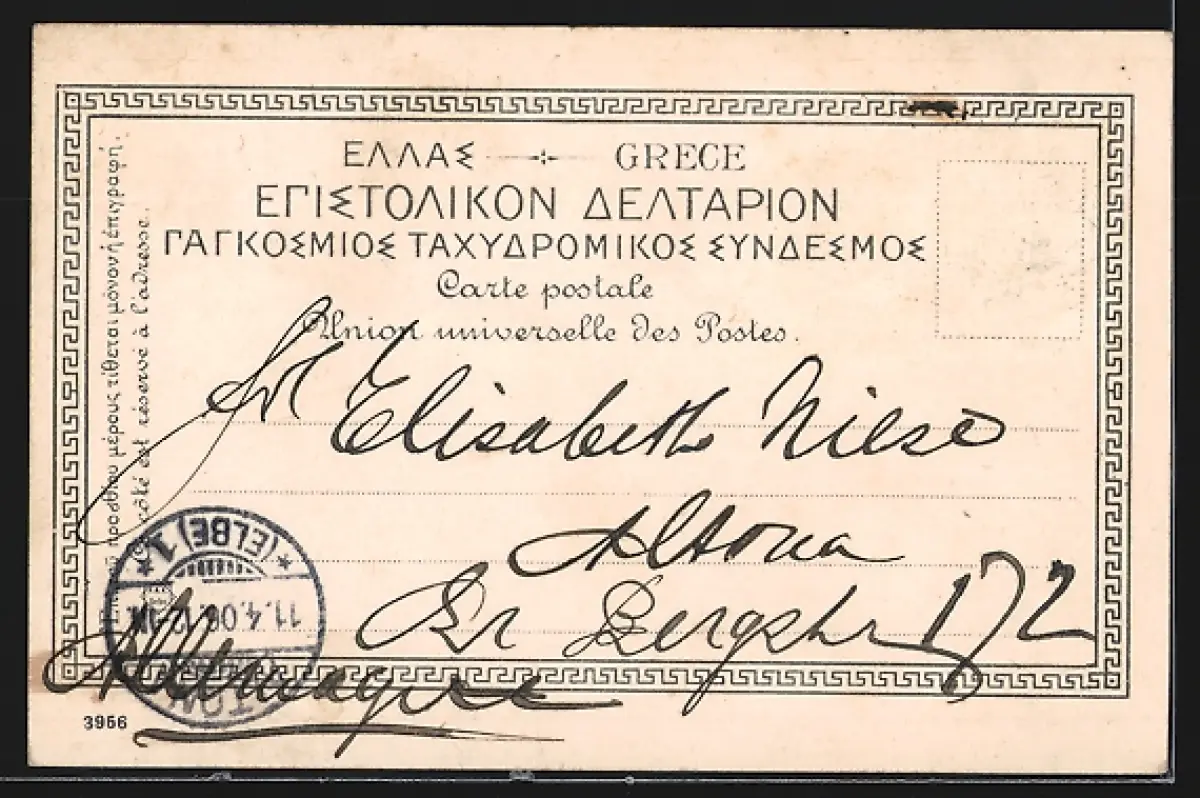 ΕΛΛΑΣ GRECE
ΕΠΙΣΤΟΛΙΚΟΝ ΔΕΛΤΑΡΙΟΝ
ΠΑΓΚΟΣΜΙΟΣ ΤΑΧΥΔΡΟΜΙΚΟΣ ΣΥΝΔΕΣΜΟΣ
Carte postale
Union universelle des Postes.
προσθίου μέρους τίθεται μόνον ἡ ἐπιγραφή.
côté est réservé à l'adresse.
Frl Elisabeth Niese
Altona
Gr Bergstr 172
Allemagne
(ELBE) 1
11.4.06.12-1N
3956